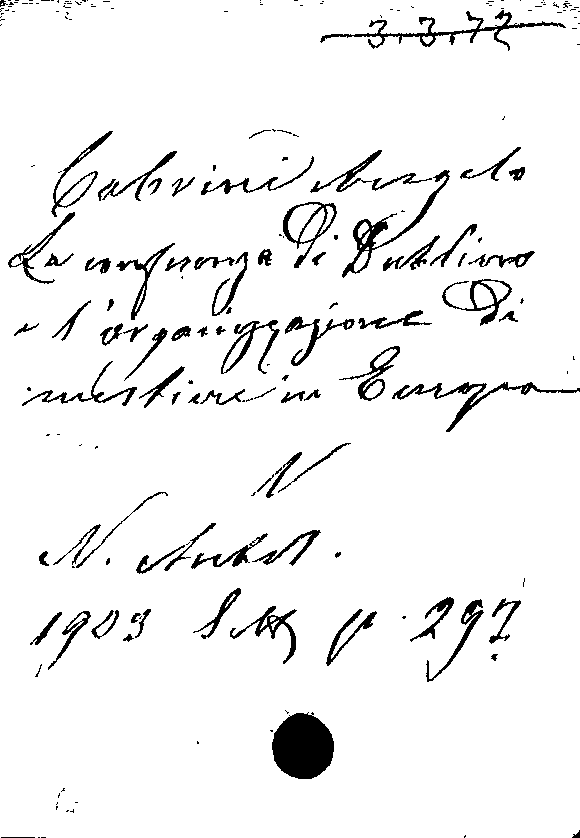 3.3.77
Cabrini Angelo
La conferenza di Dublino
e l'organizzazione di
mestiere in Europa
N
N. Antol.
1903 Sett p. 297